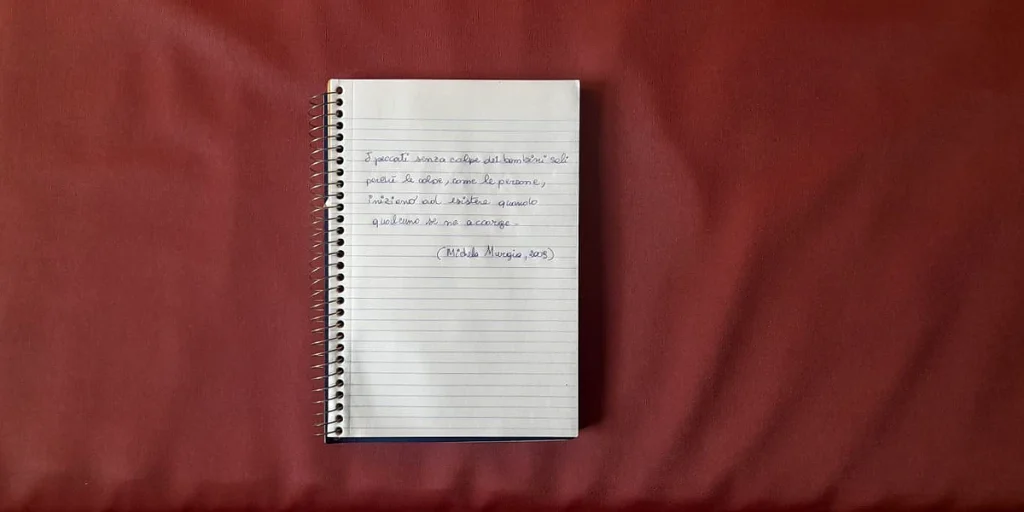 I peccati senza colpe dei bambini soli
perché le colpe, come le persone,
iniziano ad esistere quando
qualcuno se ne accorge.
(Michela Murgia, 2009)